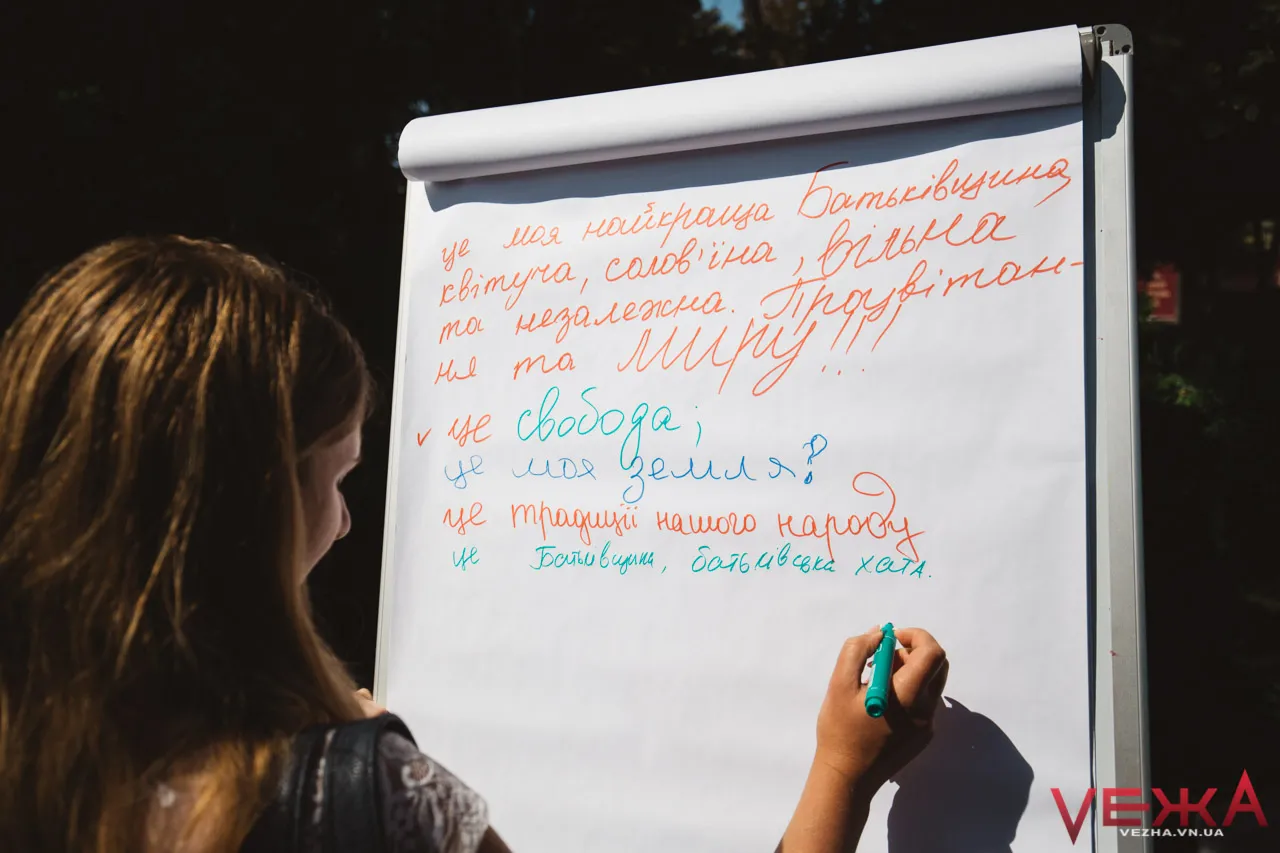 це моя найкраща Батьківщина,
квітуча, солов'їна, вільна
та незалежна. Процвітан-
ня та МИРУ!!!
✓ це свобода;
це моя земля!
це традиції нашого народу
це Батьківщина, батьківська хата.
VЕЖА
VEZHA.VN.UA